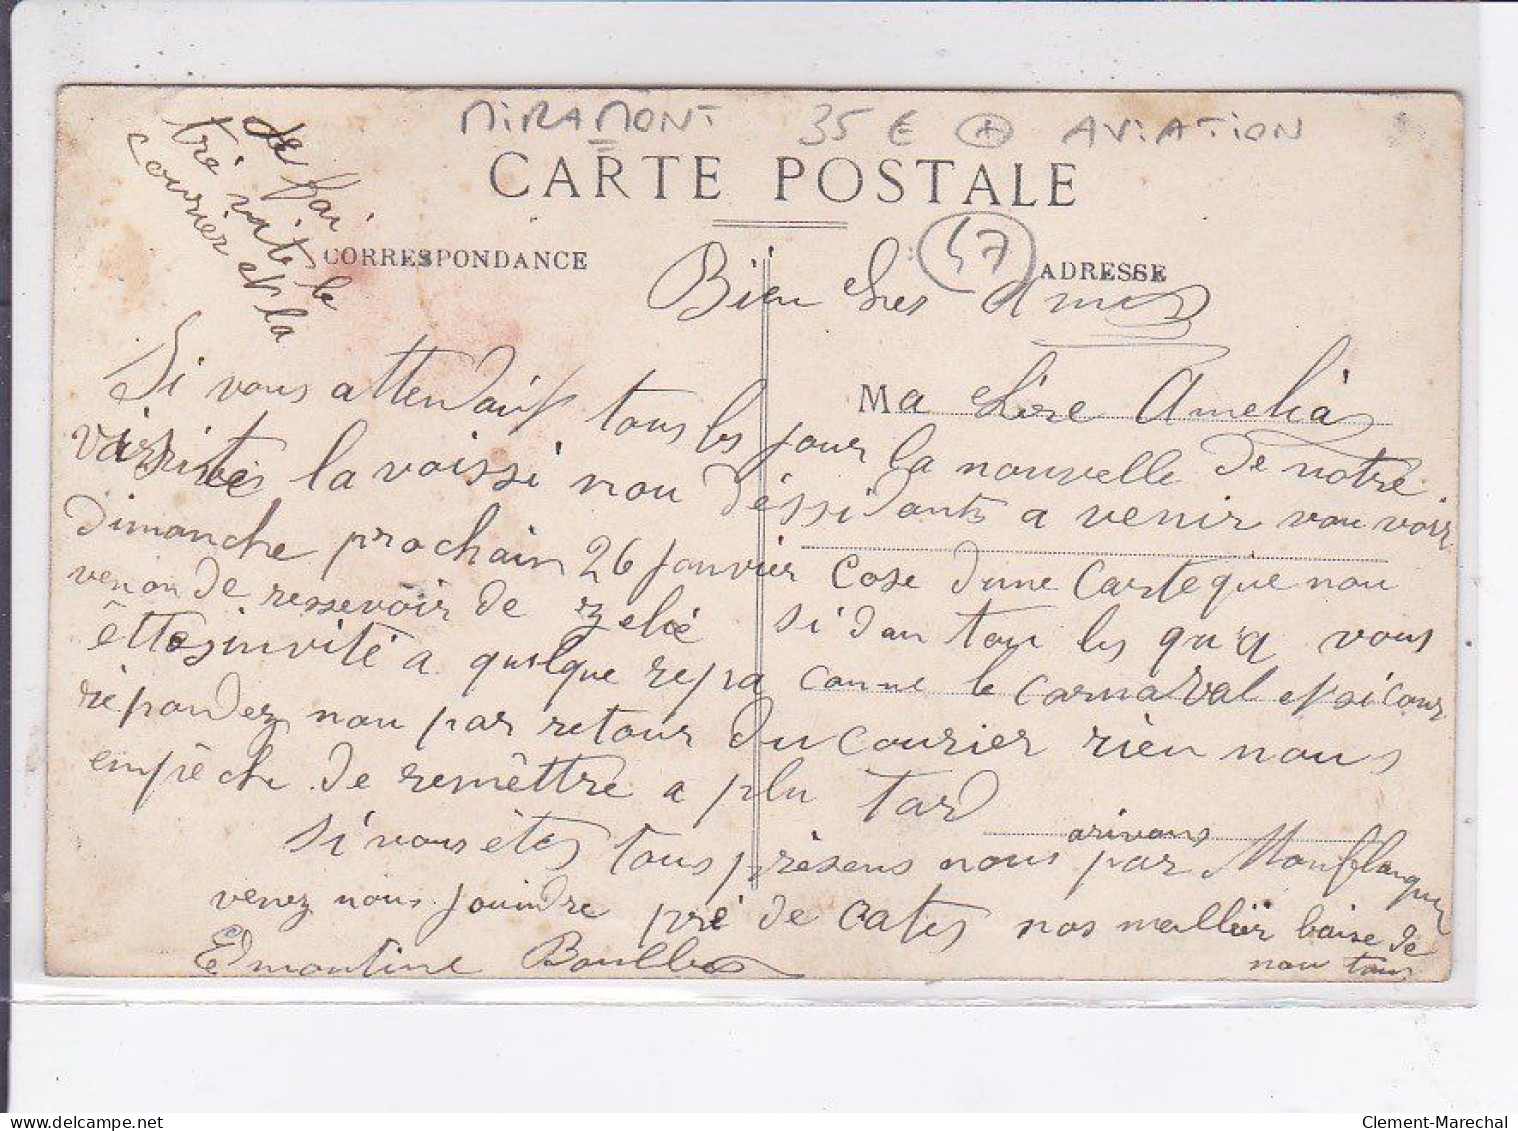 MIRAMONT 35 € A AVIATION
CARTE POSTALE
CORRESPONDANCE
47
ADRESSE
Je fai
tré vite le
courrier et la
Bien cher Amis
Ma chère Amelia
Si vous attendais tous les jour la nouvelle de notre
la voissi nou déssidants a venir vou voir
dimanche prochain 26 janvier cose dune carte que nou
venon de ressevoir de zelié si dan tou les qu'a vous
ête invité a quelque repa comme le carnaval et si cour
répondez nou par retour du courier rien nous
empêche de remêttre a plu tard
si vous êtes tous présens nous arivons par Monflanquin
venez nous joindre pré de cates nos mellieir baise de
nou tous
Edmontine Boulbes
Clement-Marechal